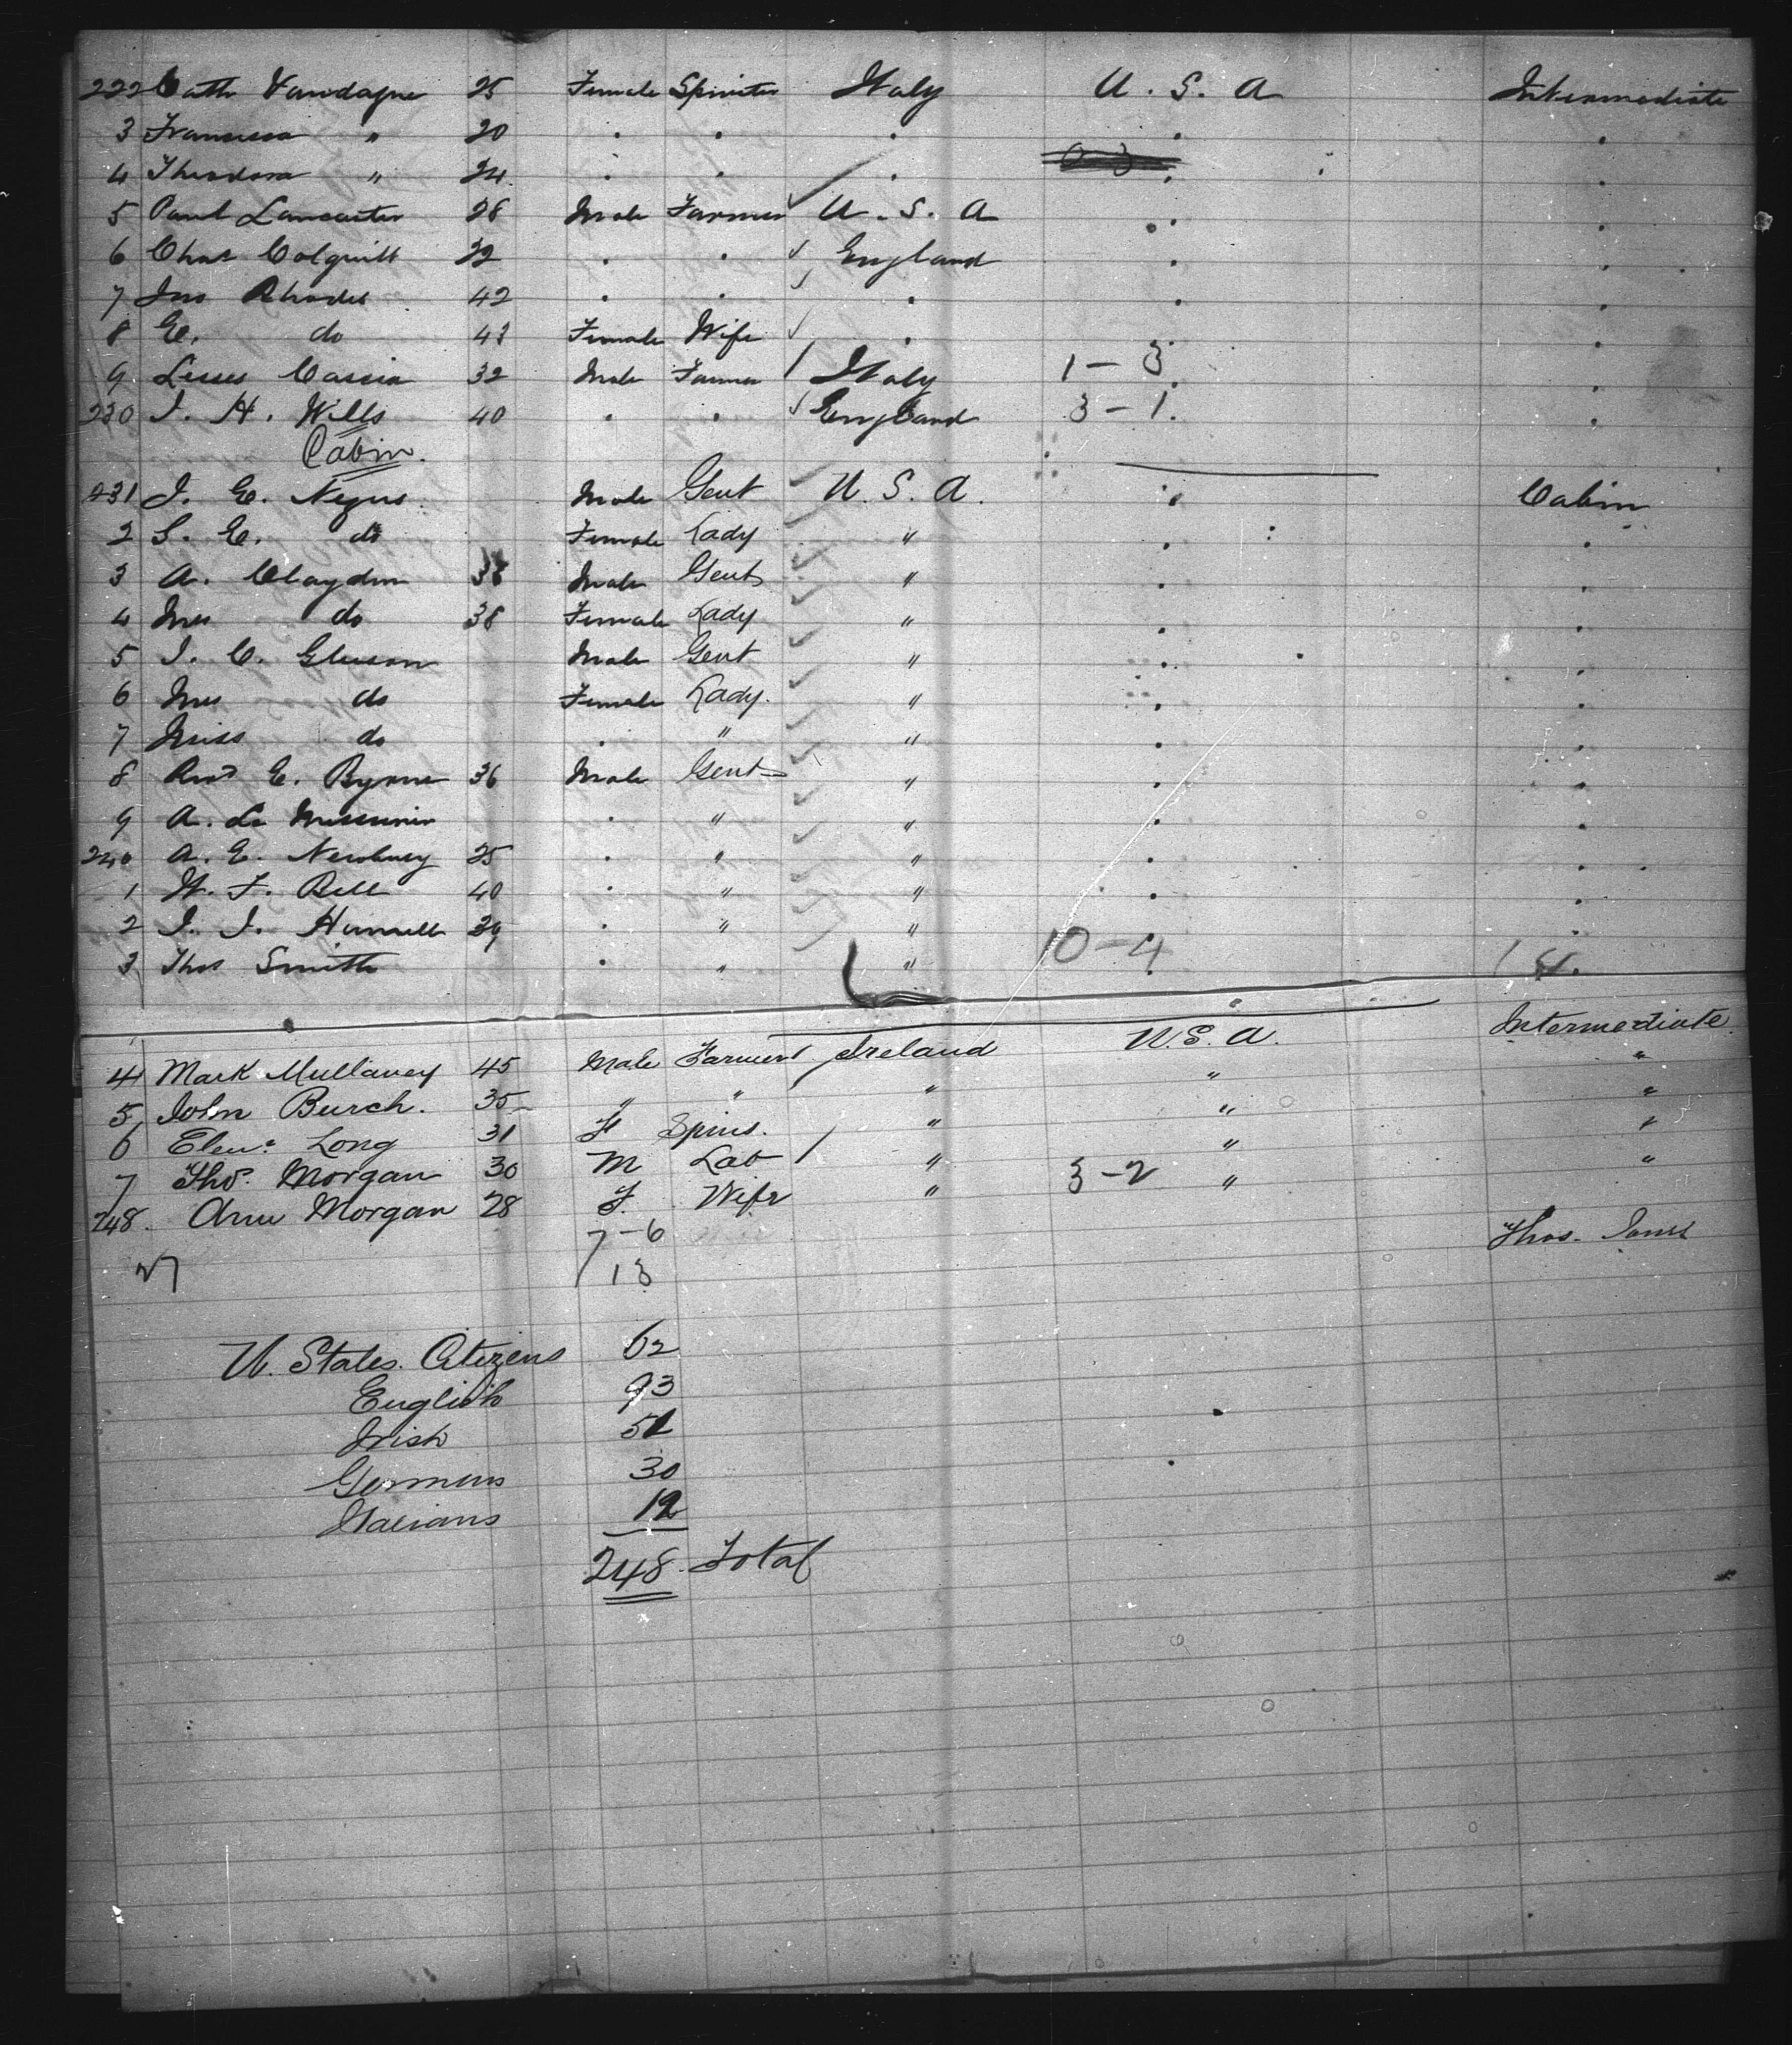 222 Cath Vandagne 25 Female Spinster Italy U. S. A Intermediate
3 Francesca " 20 . . . . .
4 Theodora " 24 . . . . .
5 Paul Lancaster 28 Male Farmer U. S. A . .
6 Chas Colquitt 32 . . England . .
7 Jno Rhodes 42 . . . . .
8 E. do 43 Female Wife . . .
9 Cassia 32 Male Farmer Italy 1 - 3 . .
230 J. H. Wills 40 . . England 3 - 1. .
Cabin.
231 J. E. Negus Male Gent U. S. A. . Cabin
2 S. E. do Female Lady " . .
3 A. Claydon 38 Male Gent " . .
4 Mrs do 38 Female Lady " . .
5 J. C. Gleeson Male Gent " . .
6 Mrs do Female Lady. " . .
7 Miss do . " " . .
8 Revd E. Byrne 36 Male Gent " . .
9 A. Le Messurier . " " . .
240 A. E. Newbury 25 . " " . .
1 W. F. Bell 40 . " " . .
2 J. J. 39 . " " . .
3 Thos Smith . " " 10 - 4 .
4 Mark Mullaney 45 Male Farmer Ireland U. S. A. Intermediate
5 John Burch. 35 " " " " "
6 Elen. Long 31 F Spins. " " "
7 Thos. Morgan 30 M Lab " " "
248. Ann Morgan 28 F. Wife " 3-2 " "
7-6 Thos. Jones
13
U. States. Citizens 62
English 93
Irish 51
Germans 30
Italians 12
248. Total